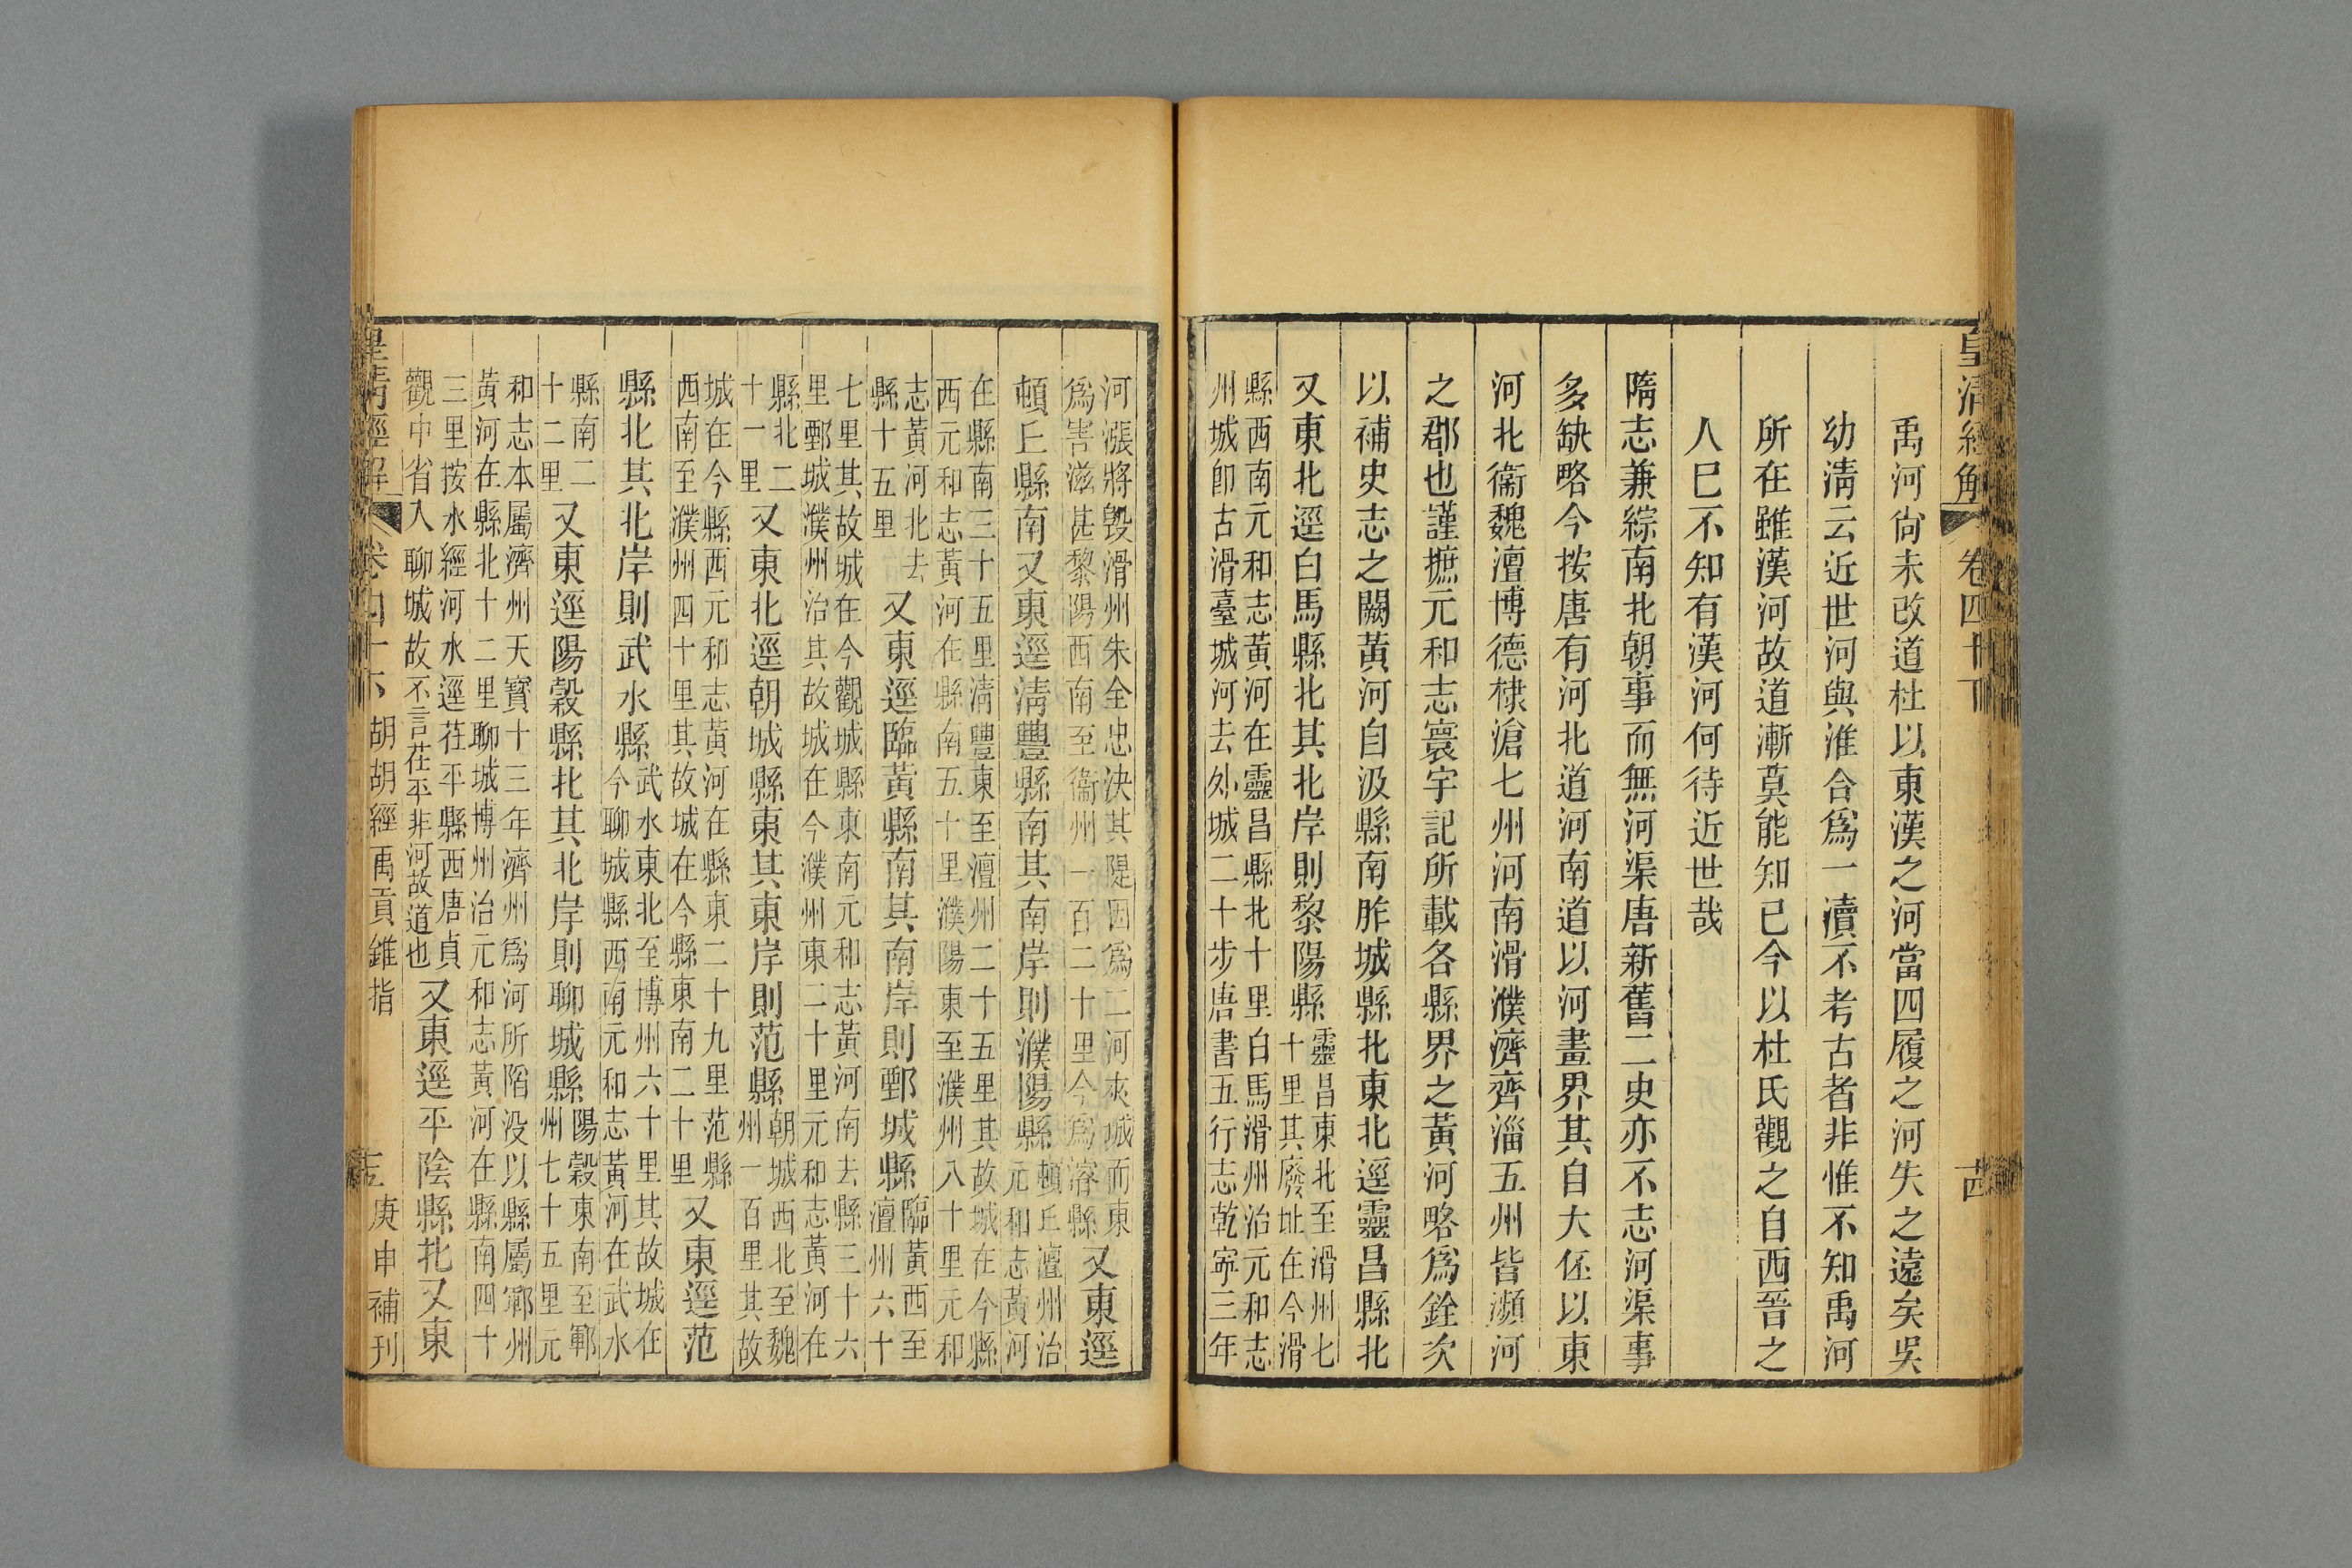 皇清經解 卷四十下 十四
禹河尙未改道杜以東漢之河當四履之河失之遠矣吳
幼淸云近世河與淮合爲一瀆不考古者非惟不知禹河
所在雖漢河故道漸莫能知已今以杜氏觀之自西晉之
人已不知有漢河何待近世哉
隋志兼綜南北朝事而無河渠唐新舊二史亦不志河渠事
多缺略今按唐有河北道河南道以河畫界其自大伾以東
河北衞魏澶博德棣滄七州河南滑濮濟齊淄五州皆瀕河
之郡也謹摭元和志寰宇記所載各縣界之黃河略爲銓次
以補史志之闕黃河自汲縣南胙城縣北東北逕靈昌縣北
又東北逕白馬縣北其北岸則黎陽縣
靈昌東北至滑州七
十里其廢址在今滑
縣西南元和志黃河在靈昌縣北十里白馬滑州治元和志
州城卽古滑臺城河去外城二十步唐書五行志乾寧三年
河漲將毀滑州朱全忠決其隄因爲二河夾城而東
爲害滋甚黎陽西南至衞州一百二十里今爲濬縣
又東逕
頓丘縣南又東逕淸豐縣南其南岸則濮陽縣
頓丘澶州治
元和志黃河
在縣南三十五里淸豐東至澶州二十五里其故城在今縣
西元和志黃河在縣南五十里濮陽東至濮州八十里元和
志黃河北去
縣十五里
又東逕臨黃縣南其南岸則鄄城縣
臨黃西至
澶州六十
七里其故城在今觀城縣東南元和志黃河南去縣三十六
里鄄城濮州治其故城在今濮州東二十里元和志黃河在
縣北二
十一里
又東北逕朝城縣東其東岸則范縣
朝城西北至魏
州一百里其故
城在今縣西元和志黃河在縣東二十九里范縣
西南至濮州四十里其故城在今縣東南二十里
又東逕范
縣北其北岸則武水縣
武水東北至博州六十里其故城在
今聊城縣西南元和志黃河在武水
縣南二
十二里
又東逕陽穀縣北其北岸則聊城縣
陽穀東南至鄆
州七十五里元
和志本屬濟州天寶十三年濟州爲河所陷沒以縣屬鄆州
黃河在縣北十二里聊城博州治元和志黃河在縣南四十
三里按水經河水逕茌平縣西唐貞
觀中省入聊城故不言茌平非河故道也
又東逕平陰縣北又東
皇淸經解 卷四十下 胡朏經禹貢錐指 十五 庚申補刊